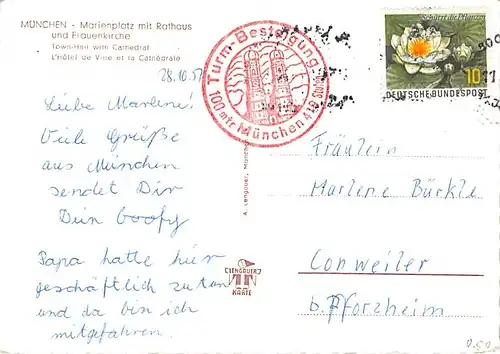 MÜNCHEN - Marienplatz mit Rathaus
und Frauenkirche
Town-Hall with Cathedral
L'Hôtel de Ville et la Cathédrale
28.10.57
Liebe Marlene!
Viele Grüße
aus München
sendet Dir
Dein Goofy
Papa hatte hier
geschäftlich zu tun
und da bin ich
mitgefahren.
Turm-Besteigung
100 mtr. München 418 Stufen
A. Lengauer, München
C LENGAUER
KARTE
Schützt die Pflanzen
10
DEUTSCHE BUNDESPOST
Fräulein
Marlene Bürkle
Conweiler
b. Pforzheim